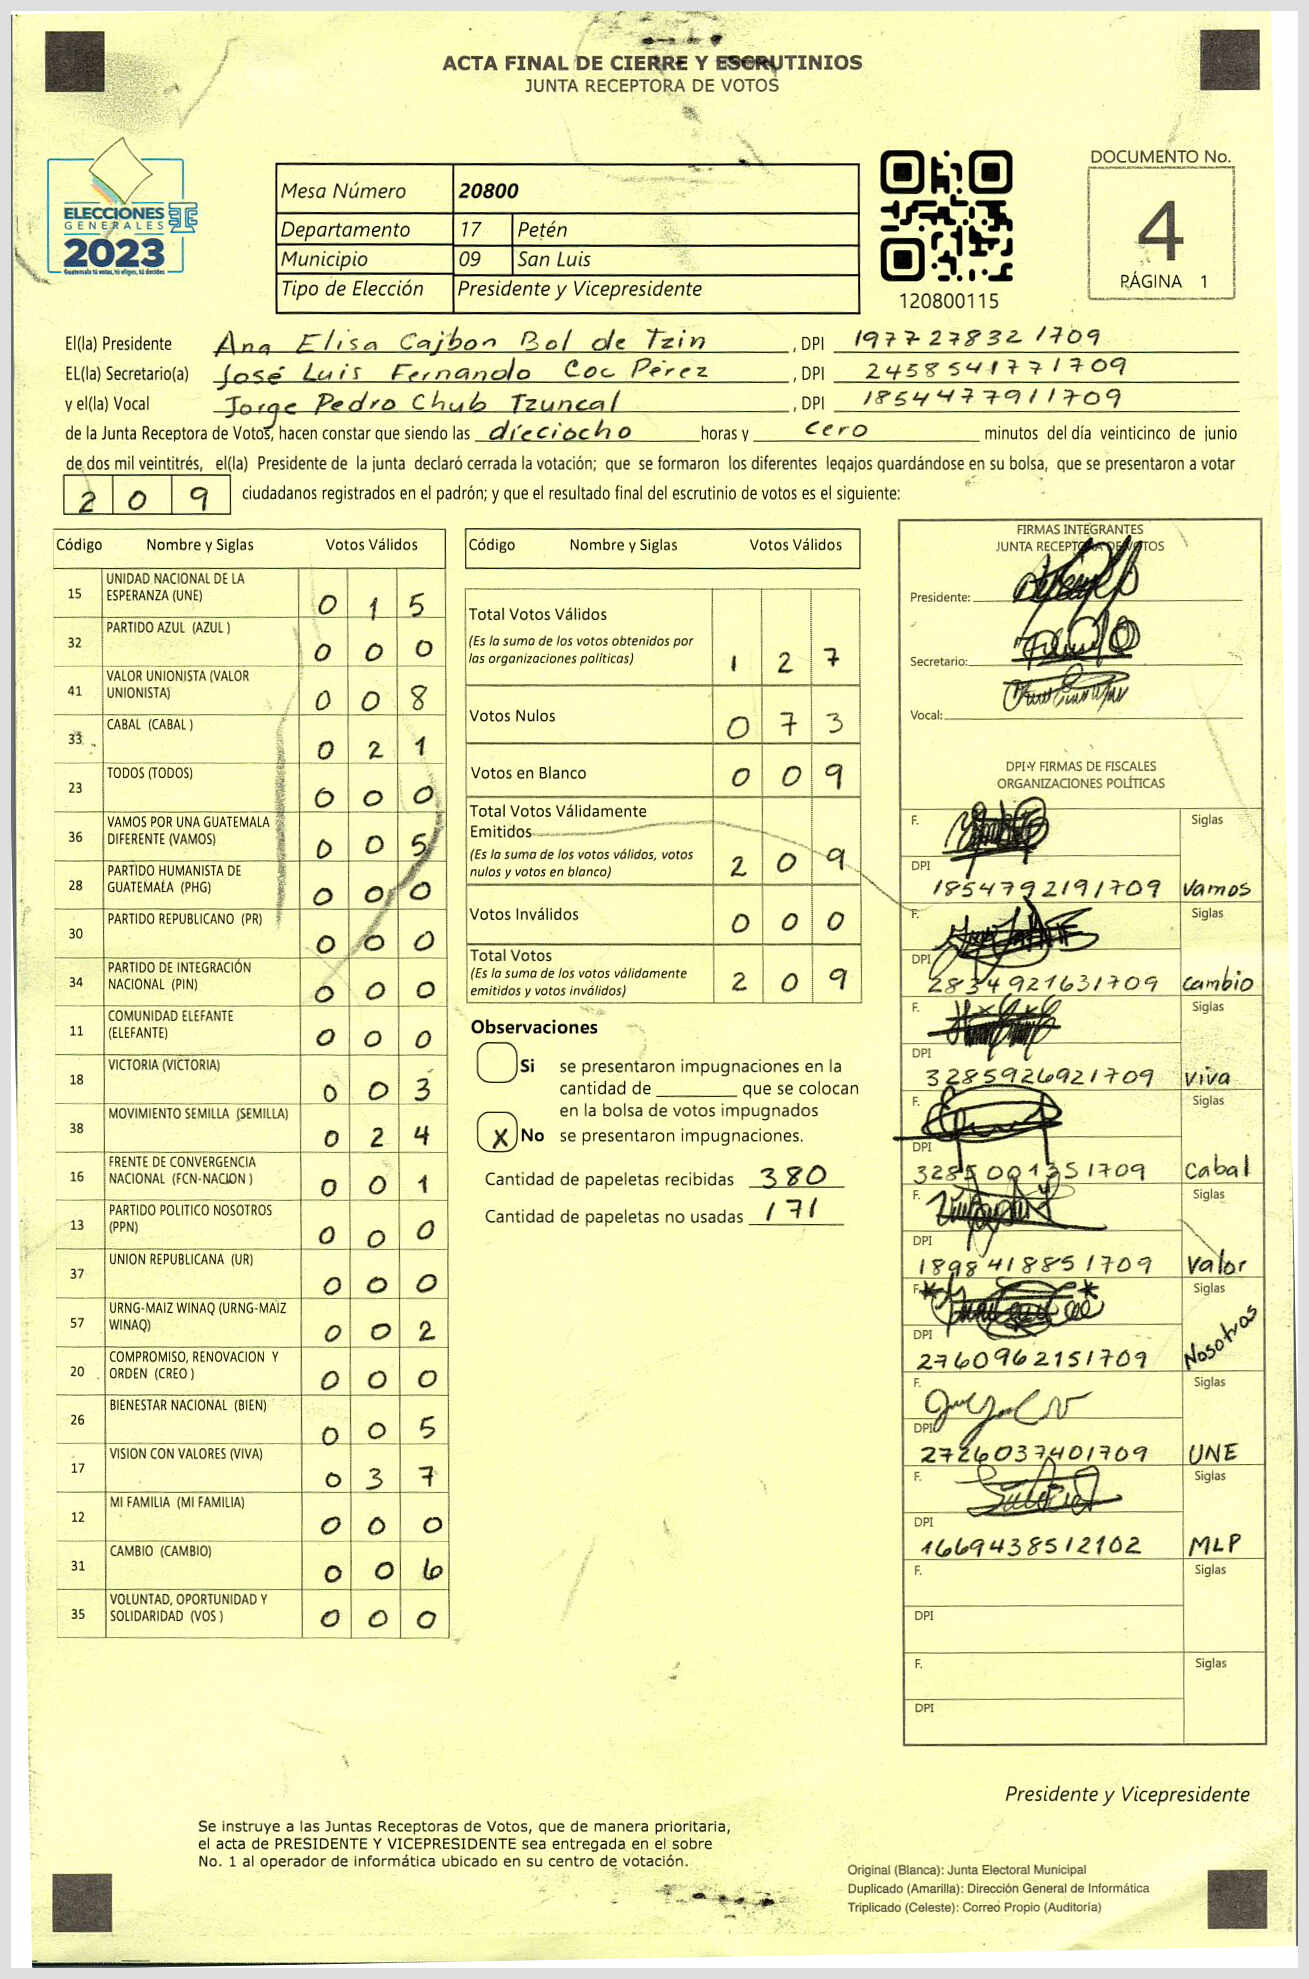 ACTA FINAL DE CIERRE Y ESCRUTINIOS
JUNTA RECEPTORA DE VOTOS
ELECCIONES
GENERALES
2023
Guatemala tú votas, tú eliges, tú decides
Mesa Número 20800
Departamento 17 Petén
Municipio 09 San Luis
Tipo de Elección Presidente y Vicepresidente
120800115
DOCUMENTO No.
4
PÁGINA 1
El(la) Presidente Ana Elisa Cajbon Bol de Tzin , DPI 1977278321709
EL(la) Secretario(a) José Luis Fernando Coc Pérez , DPI 2458541771709
y el(la) Vocal Jorge Pedro Chub Tzuncal , DPI 1854477911709
de la Junta Receptora de Votos, hacen constar que siendo las dieciocho horas y cero minutos del día veinticinco de junio
de dos mil veintitrés, el(la) Presidente de la junta declaró cerrada la votación; que se formaron los diferentes legajos guardándose en su bolsa, que se presentaron a votar
209 ciudadanos registrados en el padrón; y que el resultado final del escrutinio de votos es el siguiente:
Código Nombre y Siglas Votos Válidos
15 UNIDAD NACIONAL DE LA ESPERANZA (UNE) 015
32 PARTIDO AZUL (AZUL ) 000
41 VALOR UNIONISTA (VALOR UNIONISTA) 008
33 CABAL (CABAL ) 021
23 TODOS (TODOS) 000
36 VAMOS POR UNA GUATEMALA DIFERENTE (VAMOS) 005
28 PARTIDO HUMANISTA DE GUATEMALA (PHG) 000
30 PARTIDO REPUBLICANO (PR) 000
34 PARTIDO DE INTEGRACIÓN NACIONAL (PIN) 000
11 COMUNIDAD ELEFANTE (ELEFANTE) 000
18 VICTORIA (VICTORIA) 003
38 MOVIMIENTO SEMILLA (SEMILLA) 024
16 FRENTE DE CONVERGENCIA NACIONAL (FCN-NACION ) 001
13 PARTIDO POLITICO NOSOTROS (PPN) 000
37 UNION REPUBLICANA (UR) 000
57 URNG-MAIZ WINAQ (URNG-MAIZ WINAQ) 002
20 COMPROMISO, RENOVACION Y ORDEN (CREO ) 000
26 BIENESTAR NACIONAL (BIEN) 005
17 VISION CON VALORES (VIVA) 037
12 MI FAMILIA (MI FAMILIA) 000
31 CAMBIO (CAMBIO) 006
35 VOLUNTAD, OPORTUNIDAD Y SOLIDARIDAD (VOS ) 000
Código Nombre y Siglas Votos Válidos
Total Votos Válidos
(Es la suma de los votos obtenidos por
las organizaciones políticas) 127
Votos Nulos 073
Votos en Blanco 009
Total Votos Válidamente
Emitidos
(Es la suma de los votos válidos, votos
nulos y votos en blanco) 209
Votos Inválidos 000
Total Votos
(Es la suma de los votos válidamente
emitidos y votos inválidos) 209
Observaciones
Si se presentaron impugnaciones en la
cantidad de ________ que se colocan
en la bolsa de votos impugnados
X No se presentaron impugnaciones.
Cantidad de papeletas recibidas 380
Cantidad de papeletas no usadas 171
FIRMAS INTEGRANTES
JUNTA RECEPTORA DE VOTOS
Presidente:
Secretario:
Vocal:
DPI Y FIRMAS DE FISCALES
ORGANIZACIONES POLÍTICAS
F. Siglas
DPI 1854792191709 Vamos
F. Siglas
DPI 2834921631709 Cambio
F. Siglas
DPI 3285926921709 viva
F. Siglas
DPI 3285001351709 Cabal
F. Siglas
DPI 1898418851709 Valor
F. Siglas
DPI 2760962151709 Nosotros
F. Siglas
DPI 2726037401709 UNE
F. Siglas
DPI 1669438512102 MLP
F. Siglas
DPI
F. Siglas
DPI
Presidente y Vicepresidente
Se instruye a las Juntas Receptoras de Votos, que de manera prioritaria,
el acta de PRESIDENTE Y VICEPRESIDENTE sea entregada en el sobre
No. 1 al operador de informática ubicado en su centro de votación.
Original (Blanca): Junta Electoral Municipal
Duplicado (Amarilla): Dirección General de Informática
Triplicado (Celeste): Correo Propio (Auditoría)